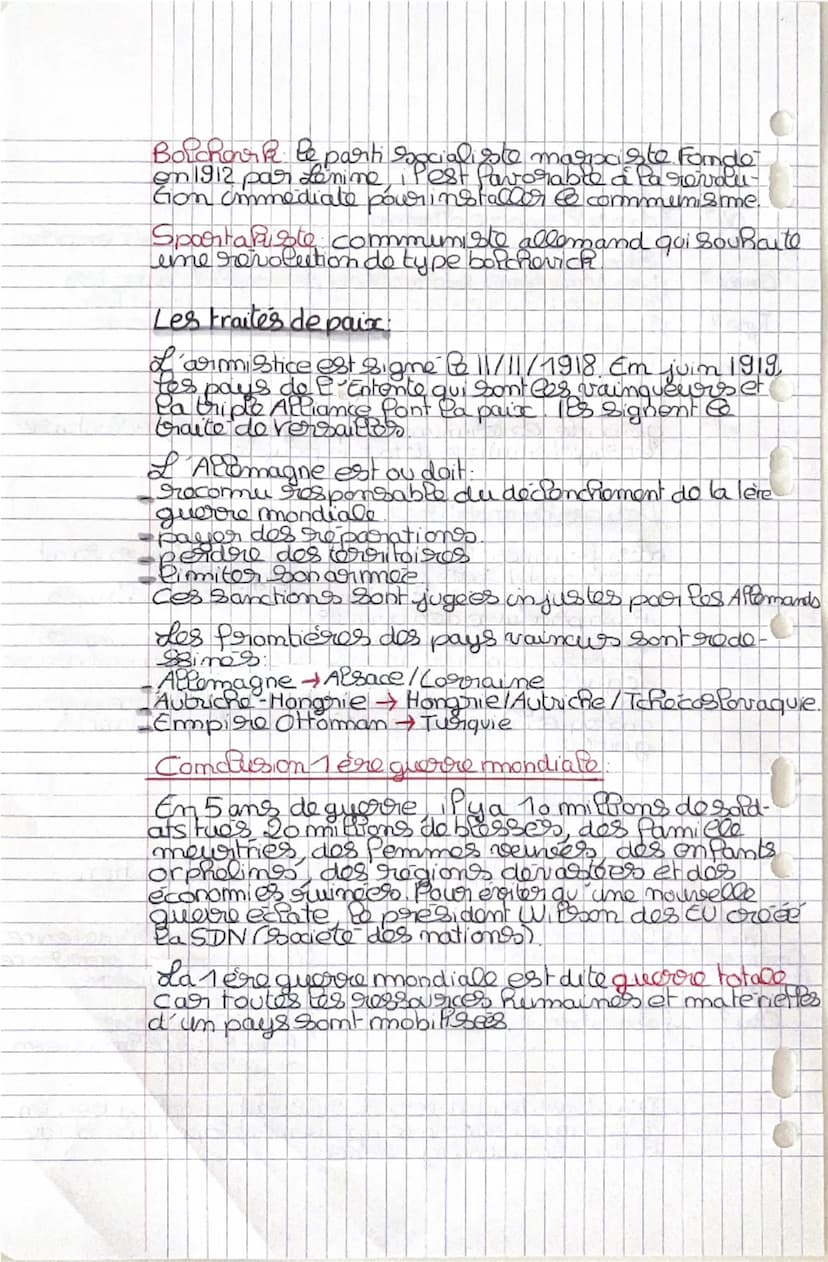 Bolchevik: le parti socialiste marxciste. Fondé
en 1912 par Lénine, il est favorable à la révolu-
tion immédiate pour installer le communisme.
Spartakiste: communiste allemand qui souhaite
une révolution de type bolchevick.
Les traités de paix:
L'armistice est signé le 11/11/1918. En juin 1919,
les pays de l'Entente qui sont les vainqueurs et
la triple Alliance font la paix. Ils signent le
traité de Versailles.
L'Allemagne est ou doit:
- reconnu responsable du déclenchement de la 1ère
guerre mondiale.
- payer des réparations.
- perdre des territoires
- limiter son armée.
Ces sanctions sont jugées injustes par les Allemands
Les frontières des pays vaincus sont rede-
ssinés:
- Allemagne → Alsace/Lorraine
- Autriche-Hongrie → Hongrie/Autriche/Tchécoslovaquie.
- Empire Ottoman → Turquie
Conclusion 1ère guerre mondiale:
En 5 ans de guerre, il y a 10 millions de sold-
ats tués, 20 millions de blessés, des famille
meurtries, des femmes veuves, des enfants
orphelins, des régions dévastées et des
économies ruinées. Pour éviter qu'une nouvelle
guerre éclate, le président Wilson des EU créée
la SDN (société des nations).
La 1ère guerre mondiale est dite guerre totale
car toutes les ressources humaines et matérielles
d'un pays sont mobilisées